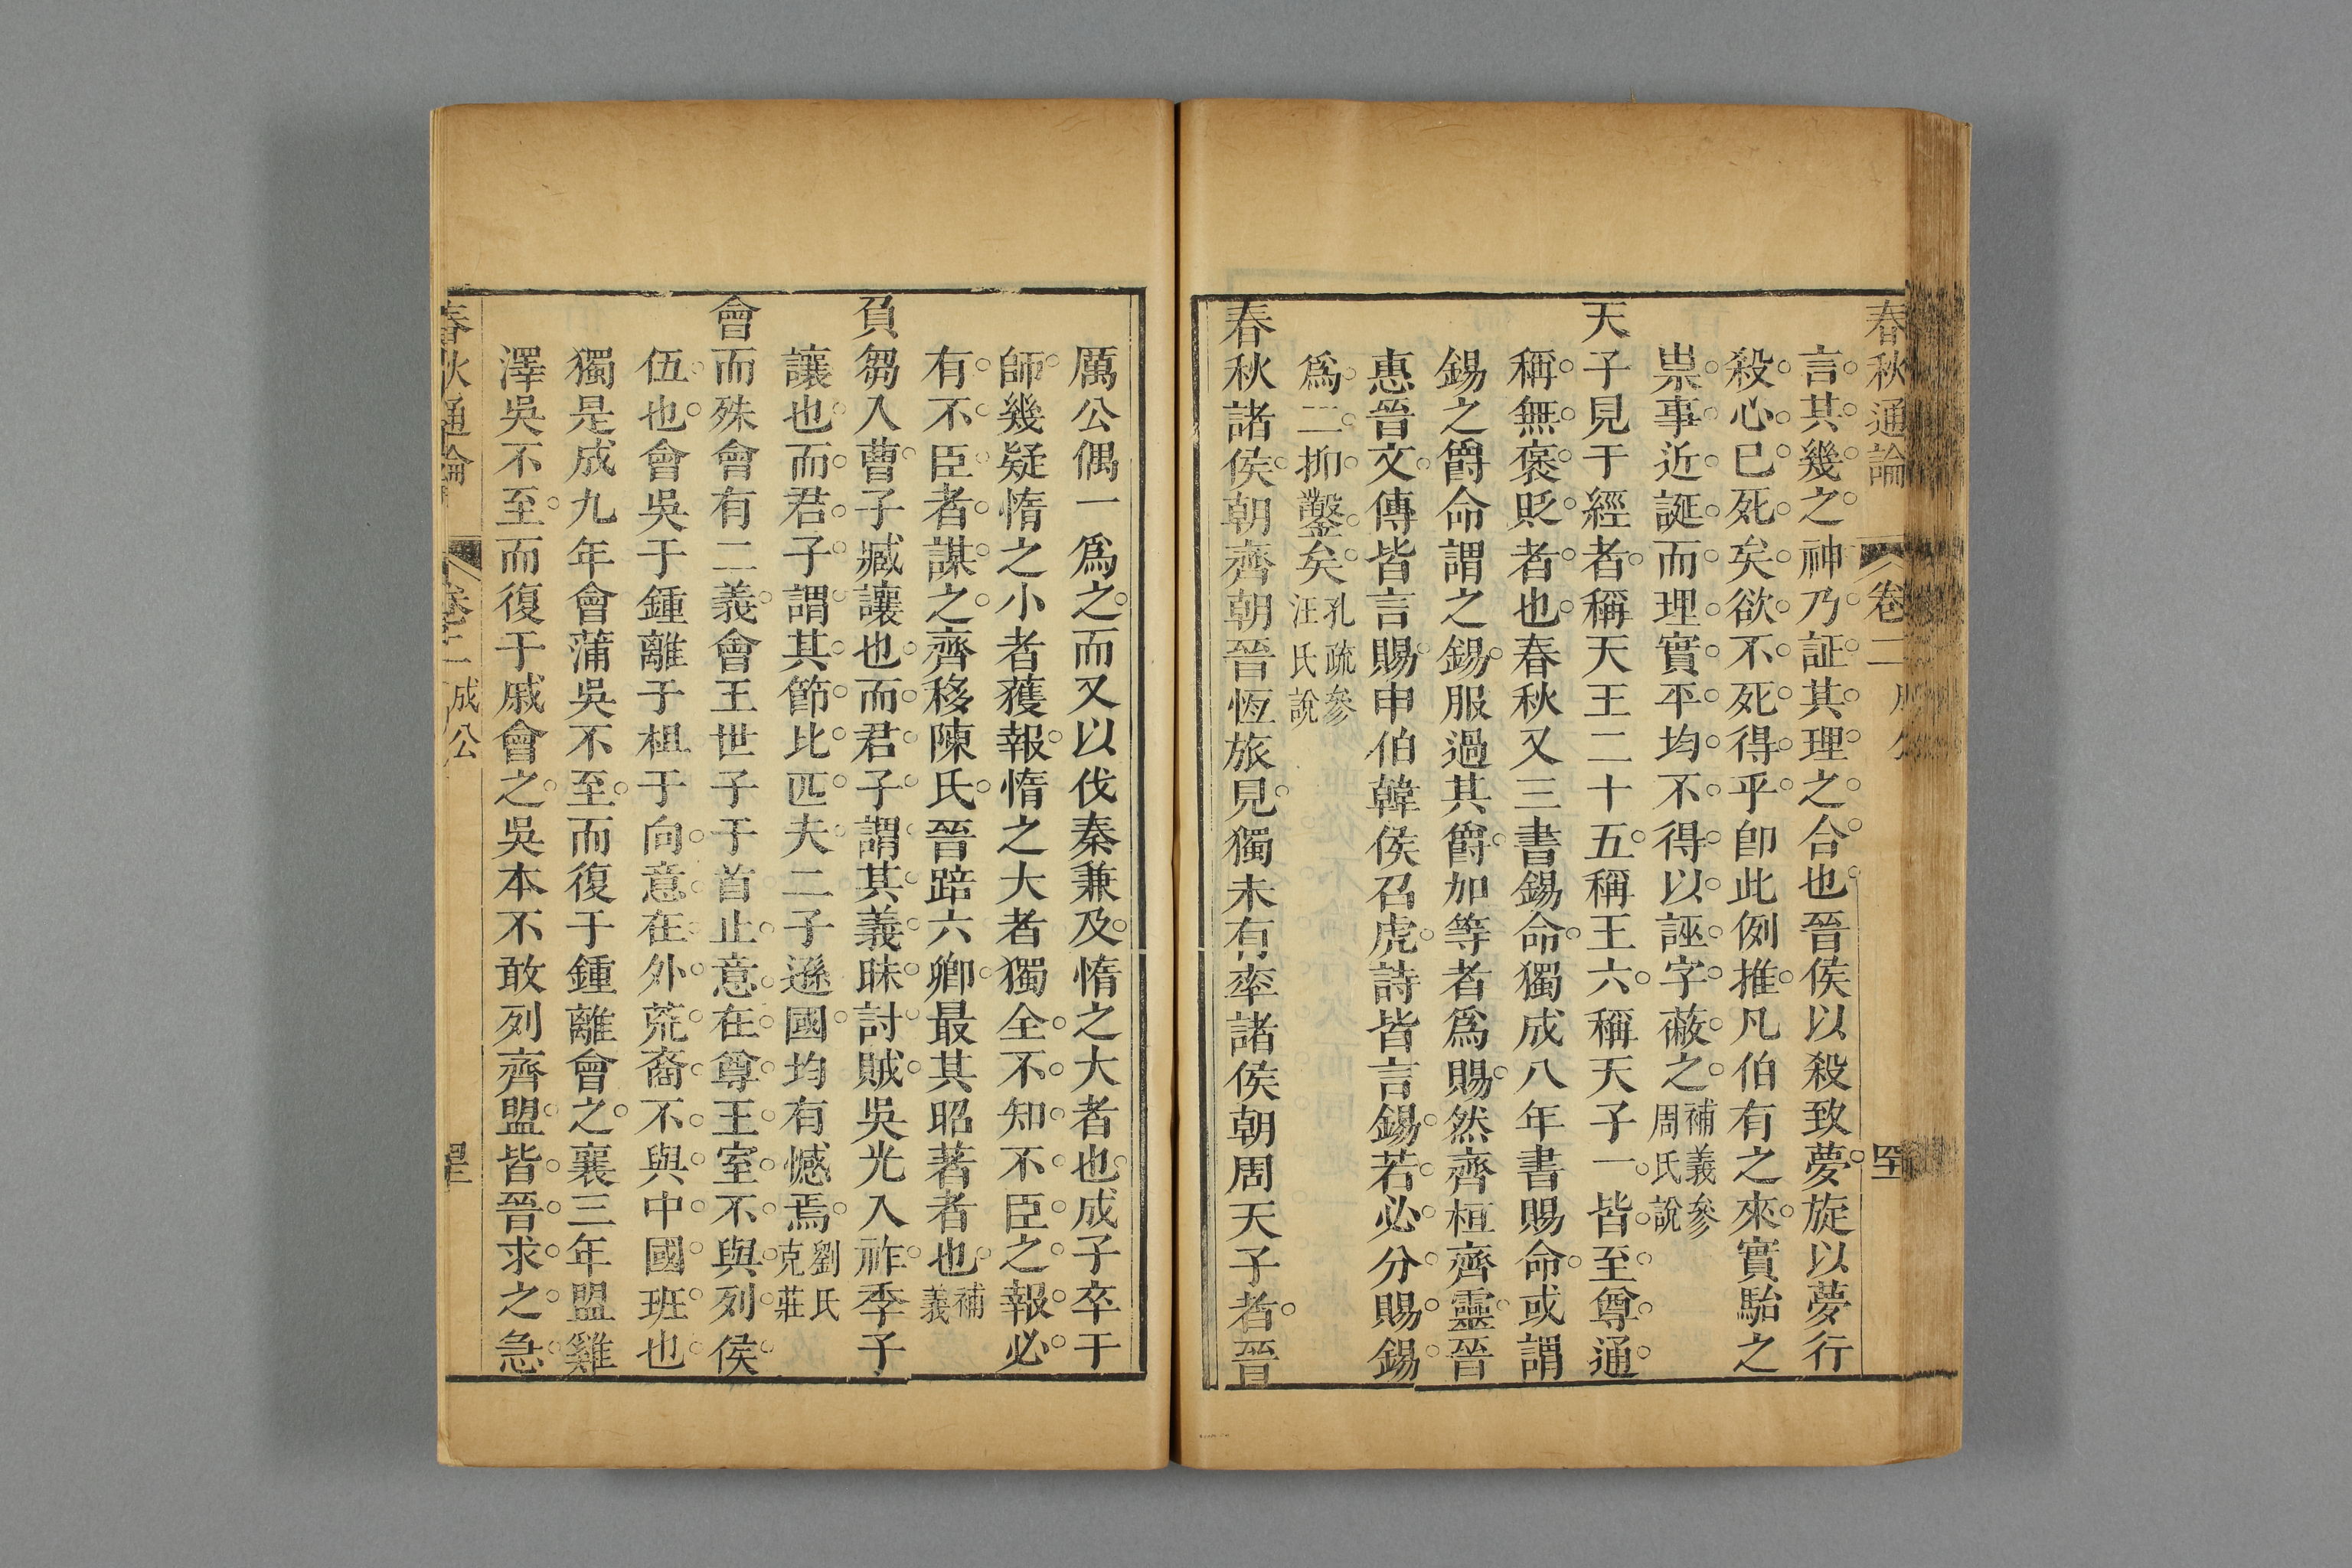 春秋通論 卷二
言其幾之神乃証其理之合也晉侯以殺致夢旋以夢行
殺心已死矣欲不死得乎卽此例推凡伯有之來實駘之
祟事近誕而理實平均不得以誣字蔽之補義參周氏說
天子見于經者稱天王二十五稱王六稱天子一皆至尊通
稱無褒貶者也春秋又三書錫命獨成八年書賜命或謂
錫之爵命謂之錫服過其爵加等者爲賜然齊桓齊靈晉
惠晉文傳皆言賜申伯韓侯召虎詩皆言錫若必分賜錫
爲二抑鑿矣孔疏參汪氏說
春秋諸侯朝齊朝晉恆旅見獨未有率諸侯朝周天子者晉
厲公偶一爲之而又以伐秦兼及惰之大者也成子卒于
師幾疑惰之小者獲報惰之大者獨全不知不臣之報必
有不臣者謀之齊移陳氏晉踣六卿最其昭著者也補義
負芻入曹子臧讓也而君子謂其義昧討賊吳光入祚季子
讓也而君子謂其節比匹夫二子遜國均有憾焉劉氏克莊
會而殊會有二義會王世子于首止意在尊王室不與列侯
伍也會吳于鍾離于柤于向意在外荒裔不與中國班也
獨是成九年會蒲吳不至而復于鍾離會之襄三年盟雞
澤吳不至而復于戚會之吳本不敢列齊盟皆晉求之急
春秋通論 卷二 成公